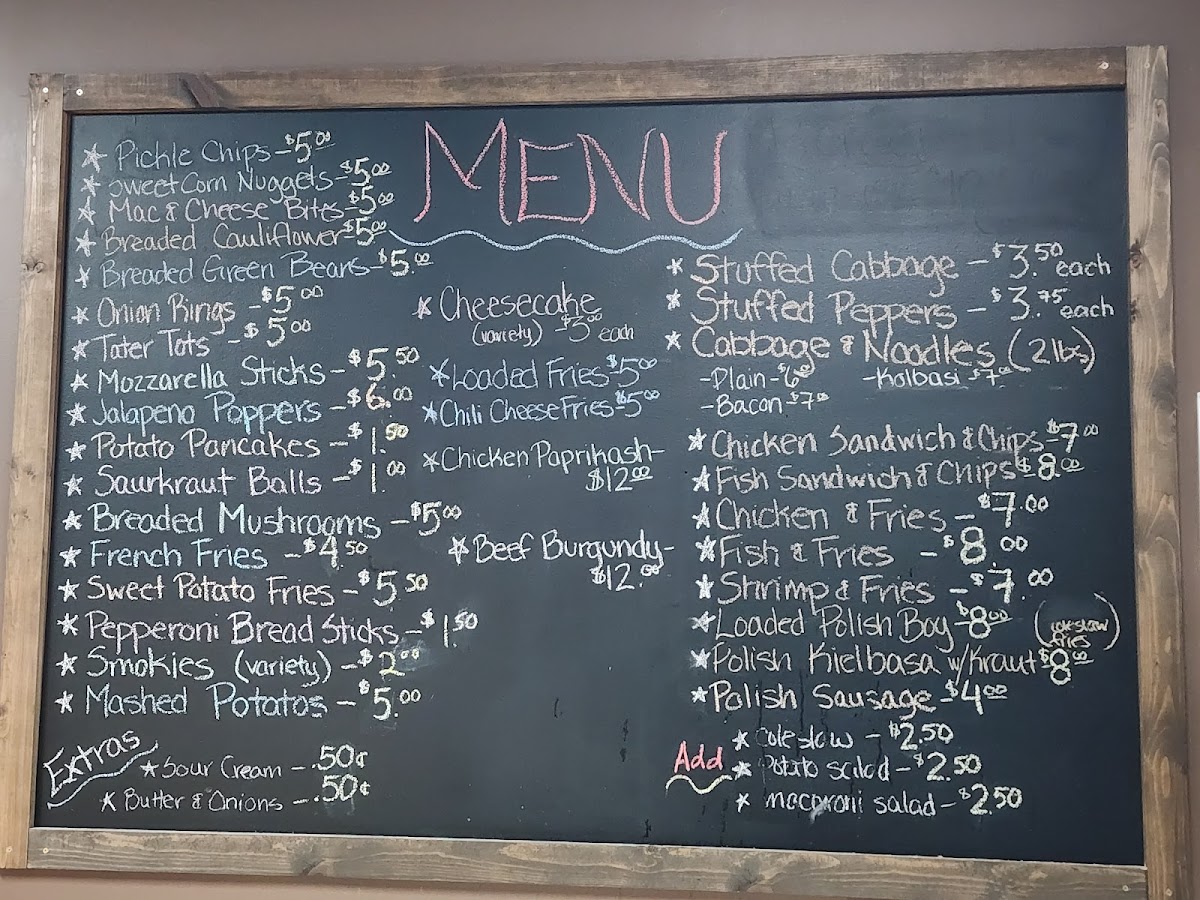 MENU
★ Pickle Chips - $5.00
★ Sweet Corn Nuggets - $5.00
★ Mac & Cheese Bites - $5.00
★ Breaded Cauliflower - $5.00
★ Breaded Green Beans - $5.00
★ Onion Rings - $5.00
★ Tater Tots - $5.00
★ Mozzarella Sticks - $5.50
★ Jalapeno Poppers - $6.00
★ Potato Pancakes - $1.50
★ Saurkraut Balls - $1.00
★ Breaded Mushrooms - $5.00
★ French Fries - $4.50
★ Sweet Potato Fries - $5.50
★ Pepperoni Bread Sticks - $1.50
★ Smokies (variety) - $2.00
★ Mashed Potatos - $5.00
Extras
★ Sour Cream - .50¢
★ Butter & Onions - .50¢
★ Cheesecake
(variety) - $3.00 each
★ Loaded Fries - $5.00
★ Chili Cheese Fries - $5.00
★ Chicken Paprikash -
$12.00
★ Beef Burgundy -
$12.00
★ Stuffed Cabbage - $3.50 each
★ Stuffed Peppers - $3.75 each
★ Cabbage & Noodles (2 lbs)
- Plain - $6.00 - Kolbasi - $7.00
- Bacon - $7.00
★ Chicken Sandwich & Chips - $7.00
★ Fish Sandwich & Chips $8.00
★ Chicken & Fries - $7.00
★ Fish & Fries - $8.00
★ Shrimp & Fries - $7.00
★ Loaded Polish Boy - $8.00 (coleslaw
fries)
★ Polish Kielbasa w/Kraut $8.00
★ Polish Sausage - $4.00
Add
★ Coleslow - $2.50
★ Potato salad - $2.50
★ macaroni salad - $2.50